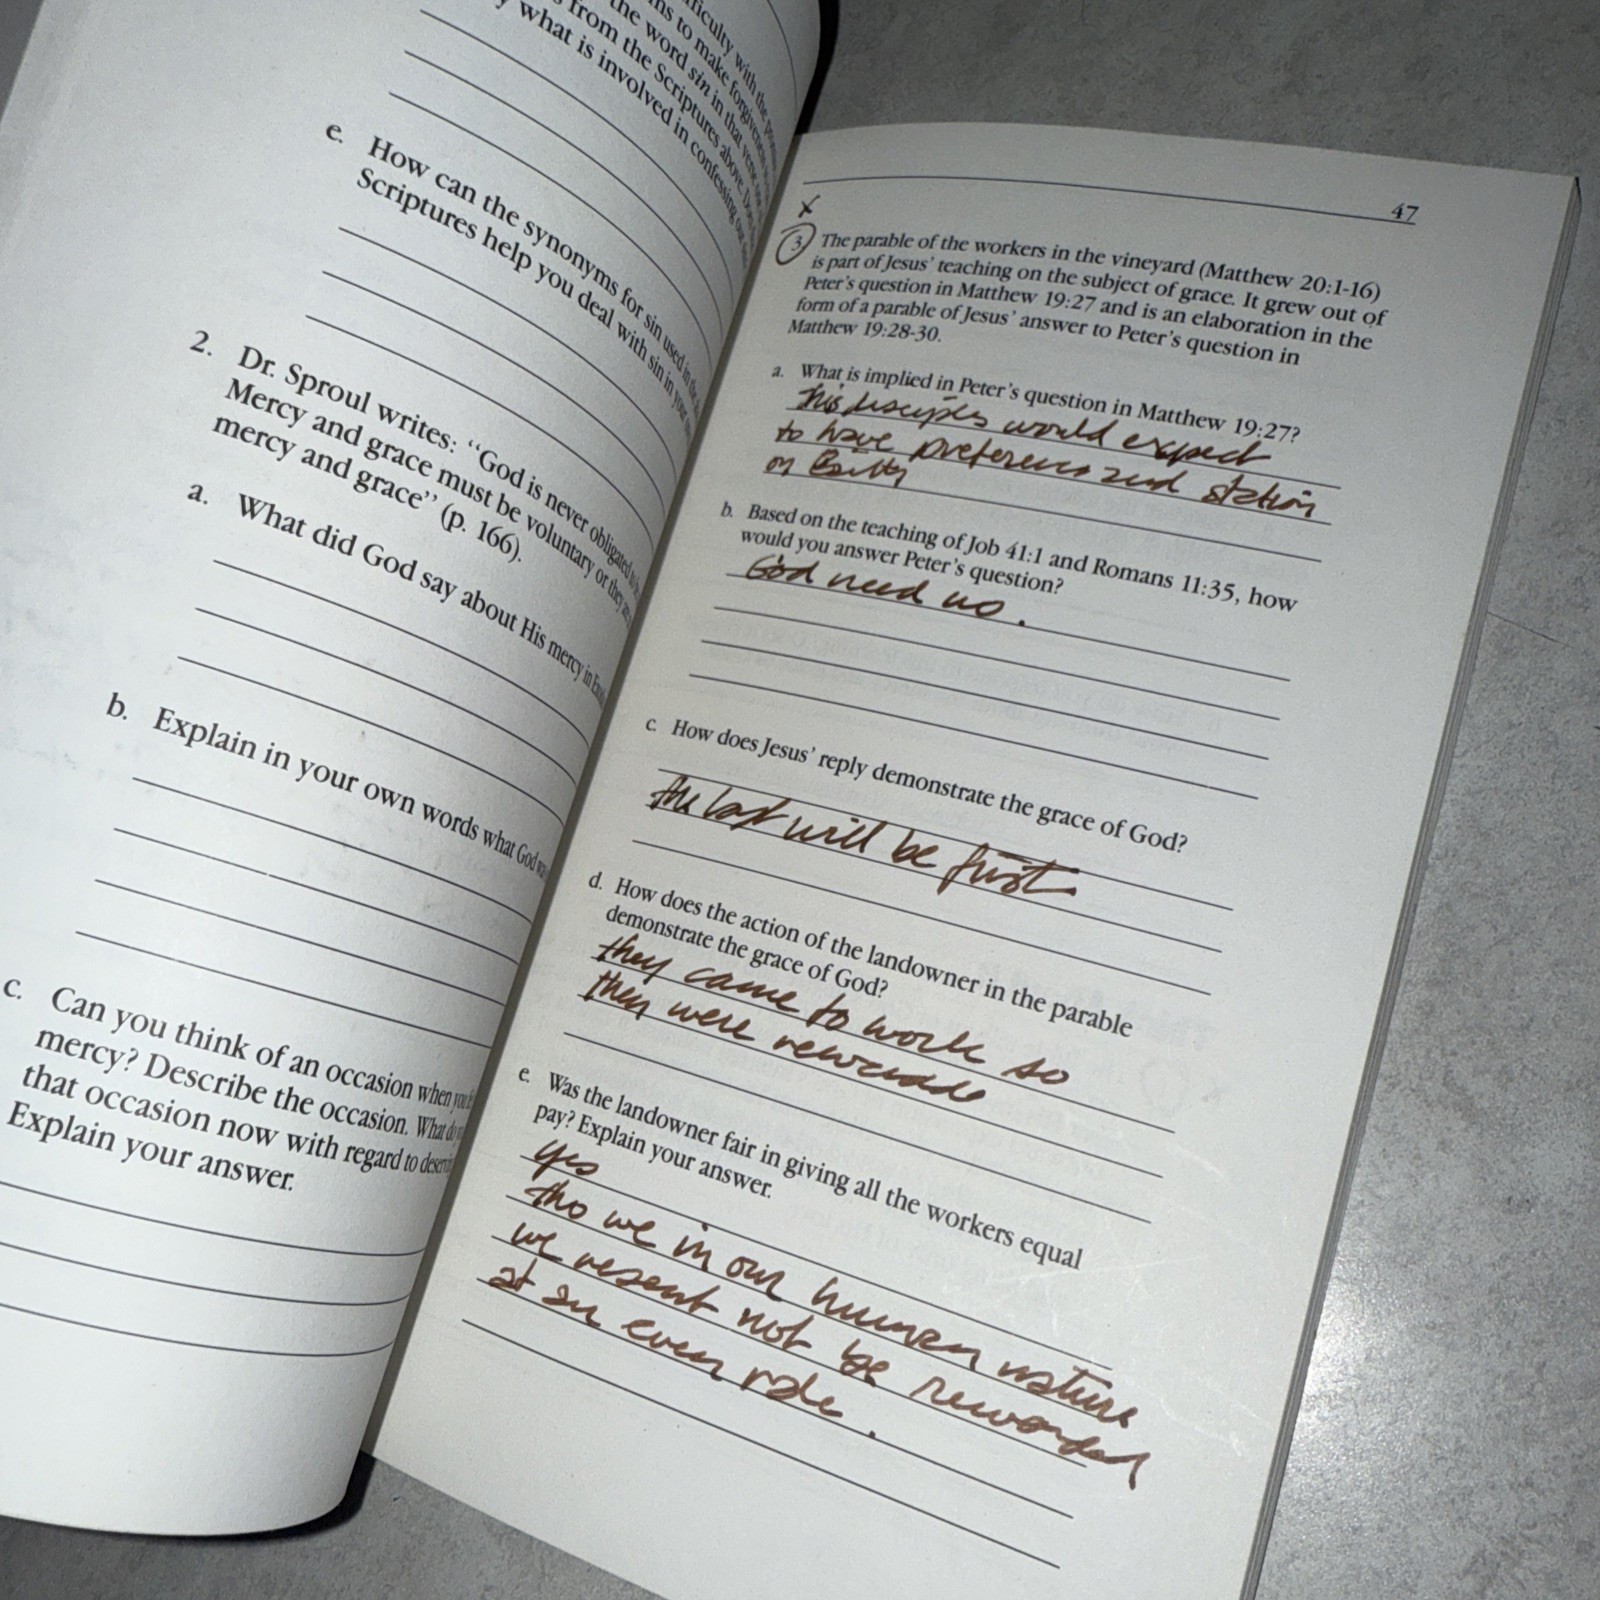 fficulty with the
ns to make forgiveness
the word sin in that verse
s from the Scriptures above.
y what is involved in confessing our
e. How can the synonyms for sin used in the
Scriptures help you deal with sin in your
2. Dr. Sproul writes: “God is never obligated to
Mercy and grace must be voluntary or they are
mercy and grace” (p. 166).
a. What did God say about His mercy in
b. Explain in your own words what God
c. Can you think of an occasion when you
mercy? Describe the occasion. What do
that occasion now with regard to
Explain your answer.
47
x
3 The parable of the workers in the vineyard (Matthew 20:1-16)
is part of Jesus’ teaching on the subject of grace. It grew out of
Peter’s question in Matthew 19:27 and is an elaboration in the
form of a parable of Jesus’ answer to Peter’s question in
Matthew 19:28-30.
a. What is implied in Peter’s question in Matthew 19:27?
his disciples would expect
to have preference and station
on Earth
b. Based on the teaching of Job 41:1 and Romans 11:35, how
would you answer Peter’s question?
God need us.
c. How does Jesus’ reply demonstrate the grace of God?
the last will be first
d. How does the action of the landowner in the parable
demonstrate the grace of God?
they came to work so
they were
e. Was the landowner fair in giving all the workers equal
pay? Explain your answer.
yes
tho we in our human nature
we resent not be rewarded
at an even rate.